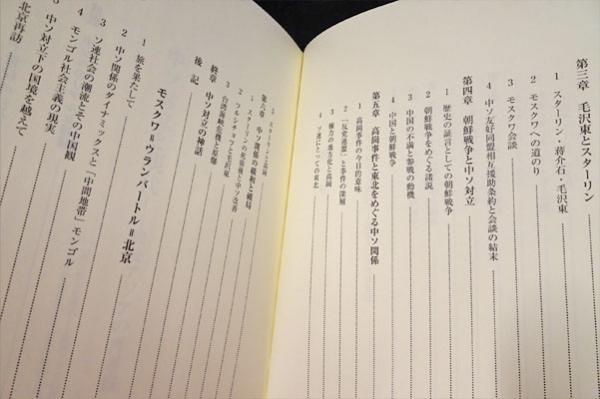 第三章 毛沢東とスターリン
1 スターリン・蔣介石・毛沢東
2 モスクワへの道のり
3 モスクワ会談
4 中ソ友好同盟相互援助条約と会談の結末
第四章 朝鮮戦争と中ソ対立
1 歴史の証言としての朝鮮戦争
2 朝鮮戦争をめぐる諸説
3 中国の不満と参戦の動機
4 中国と朝鮮戦争
第五章 高崗事件と東北をめぐる中ソ関係
1 高崗事件の今日的意味
2 「反党連盟」と事件の深層
3 権力の地方化と高崗
4 ソ連にとっての東北
5 スターリンと高崗
第六章 中ソ関係の緩和と破局
1 スターリンの死前後と中ソ改善
2 フルシチョフと毛沢東
3 台湾海峡危機と原爆
終章 中ソ対立の神話
後記
モスクワ=ウランバートル=北京
1 旅を果たして
2 中ソ関係のダイナミックスと「中間地帯」モンゴル
3 ソ連社会の潮流とその中国観
4 モンゴル社会主義の現実
5 中ソ対立下の国境を越えて
北京再訪